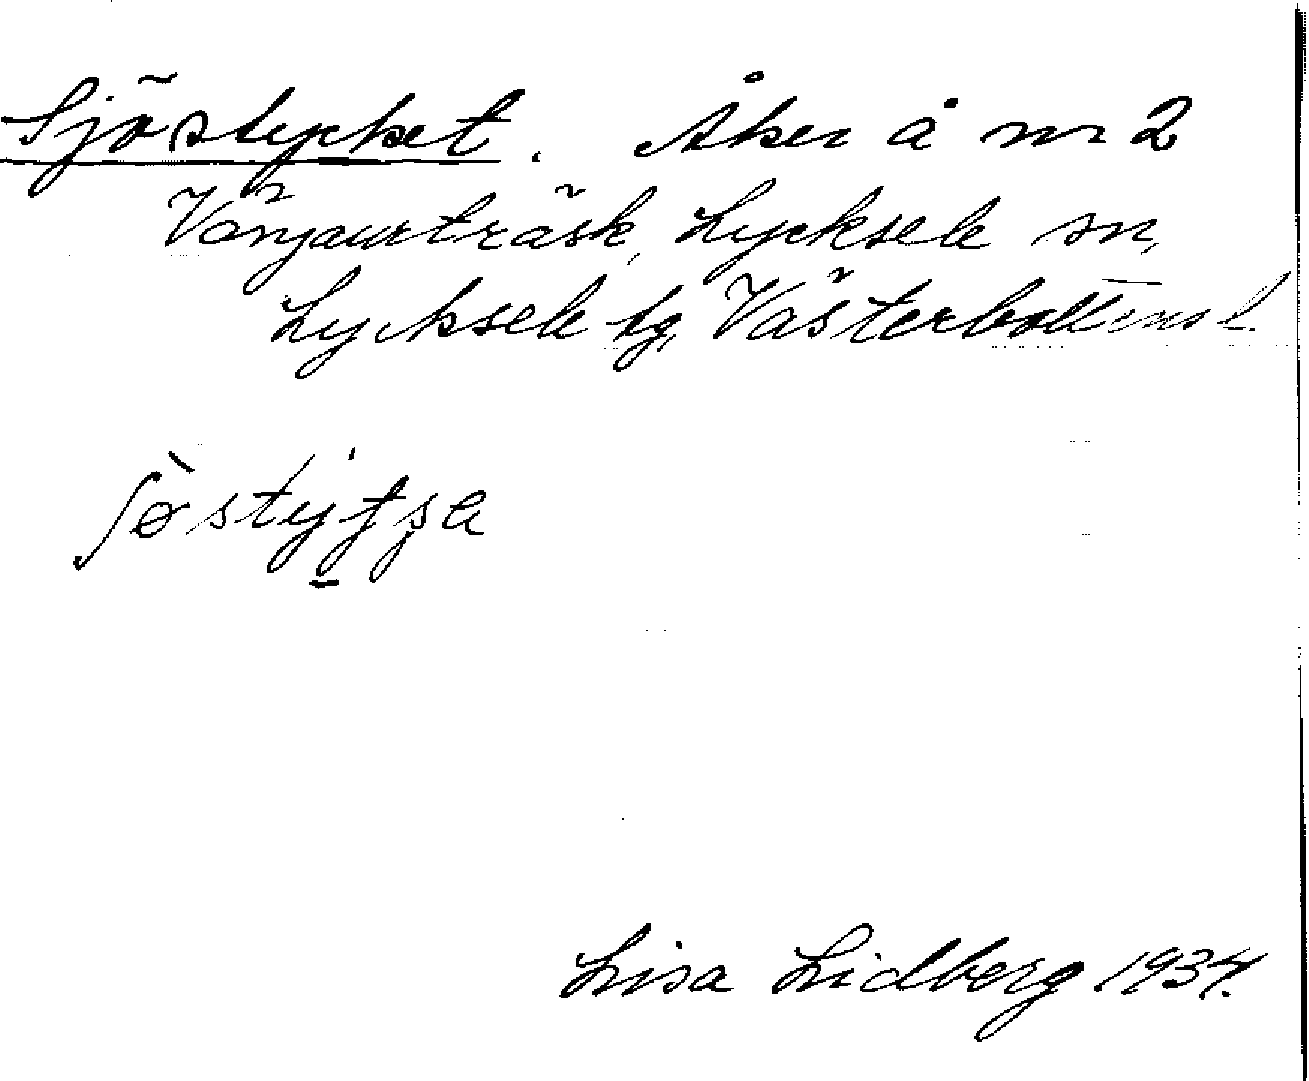 Sjöstycket. Åker å nr 2
Vänjaurträsk, Lycksele sn,
Lycksele tg, Västerbottens l.
ʃø̀styt̯ʂa
Lisa Lidberg 1934.